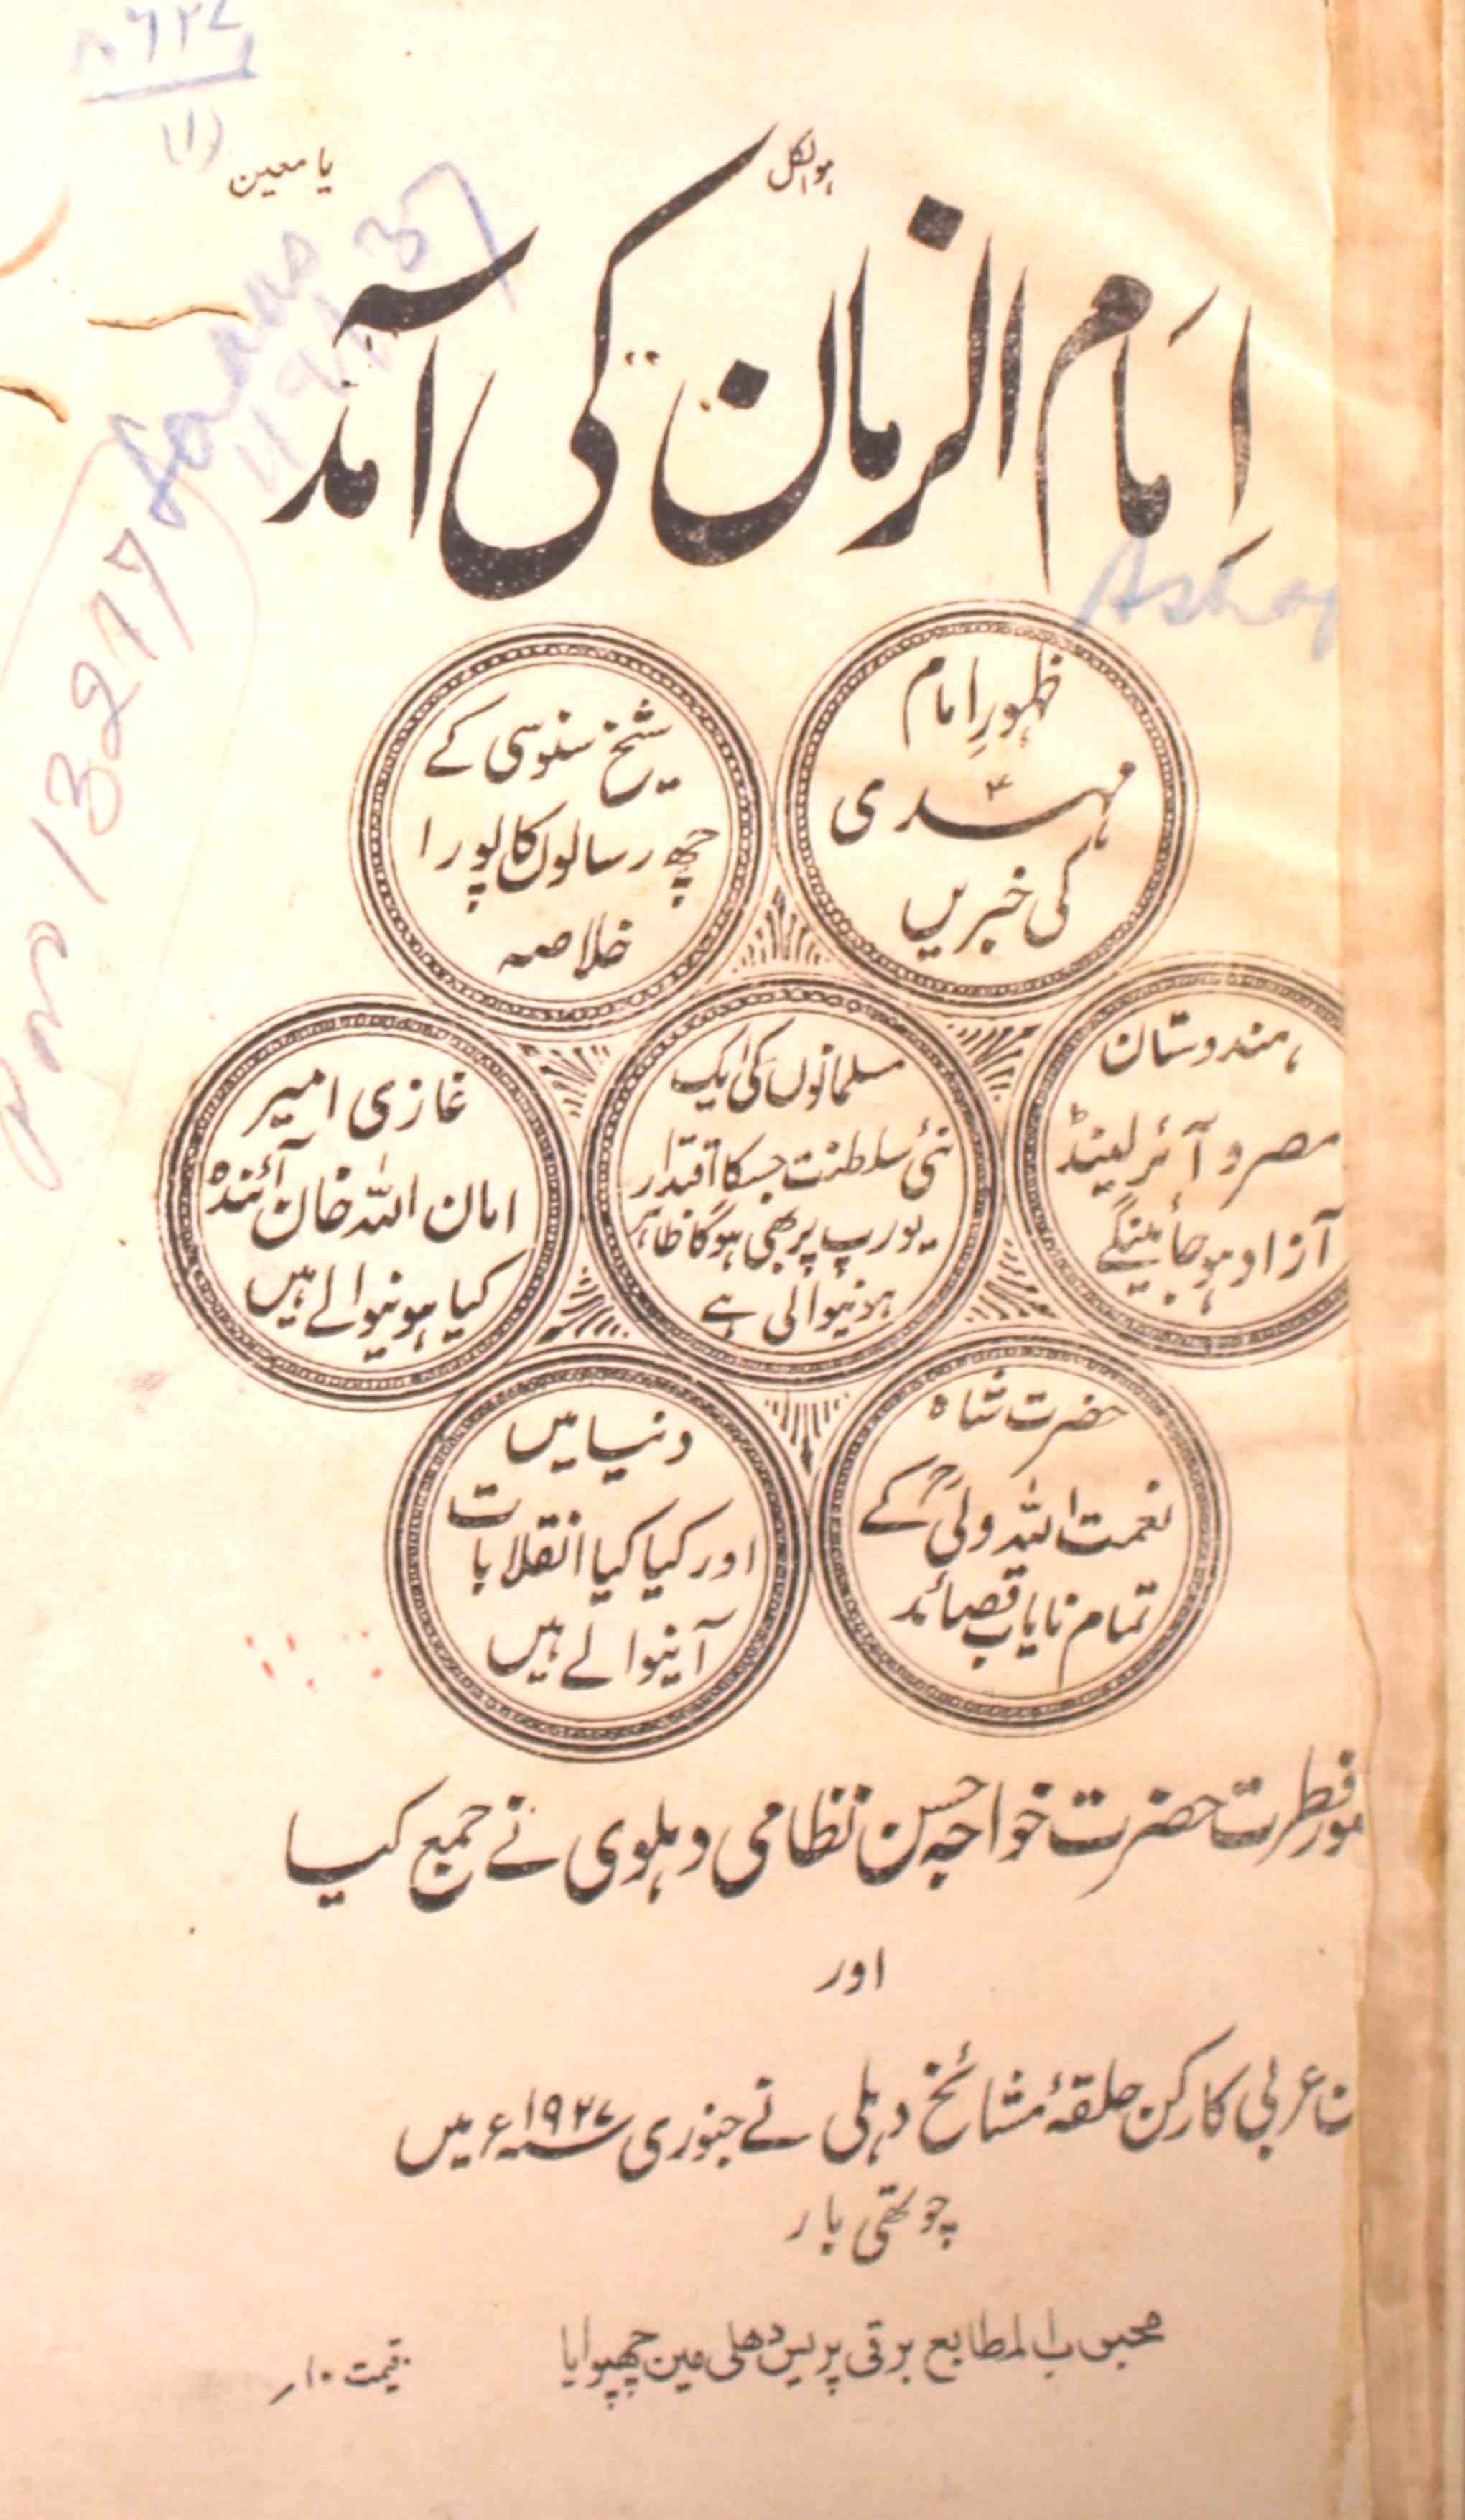 ۸۶۲۷
(۱)
ہوالکل
یا معین
اِمَام الزمان کی آمد
ظہورِ امام
مہدیؑ
کی خبریں
شیخ سنوسی کے
چھ رسالوں کا پورا
خلاصہ
ہندوستان
مصر و آئرلینڈ
آزاد ہو جائینگے
مسلمانوں کی ایک
نئی سلطنت جسکا اقتدار
یورپ پر بھی ہوگا ظاہر
ہونیوالی ہے
غازی امیر
امان اللہ خان آئندہ
کیا ہونیوالے ہیں
حضرت شاہ
نعمت اللہ ولیؒ کے
تمام نایاب قصائد
دنیا میں
اور کیا کیا انقلابات
آنیوالے ہیں
فطرت حضرت خواجہ حسن نظامی دہلوی نے جمع کیا
اور
عربی کارکن حلقۂ مشائخ دہلی نے جنوری ۱۹۲۷ء میں
چوتھی بار
محبوب المطابع برقی پریس دھلی مین چھپوایا
قیمت ۱۰ر
13217